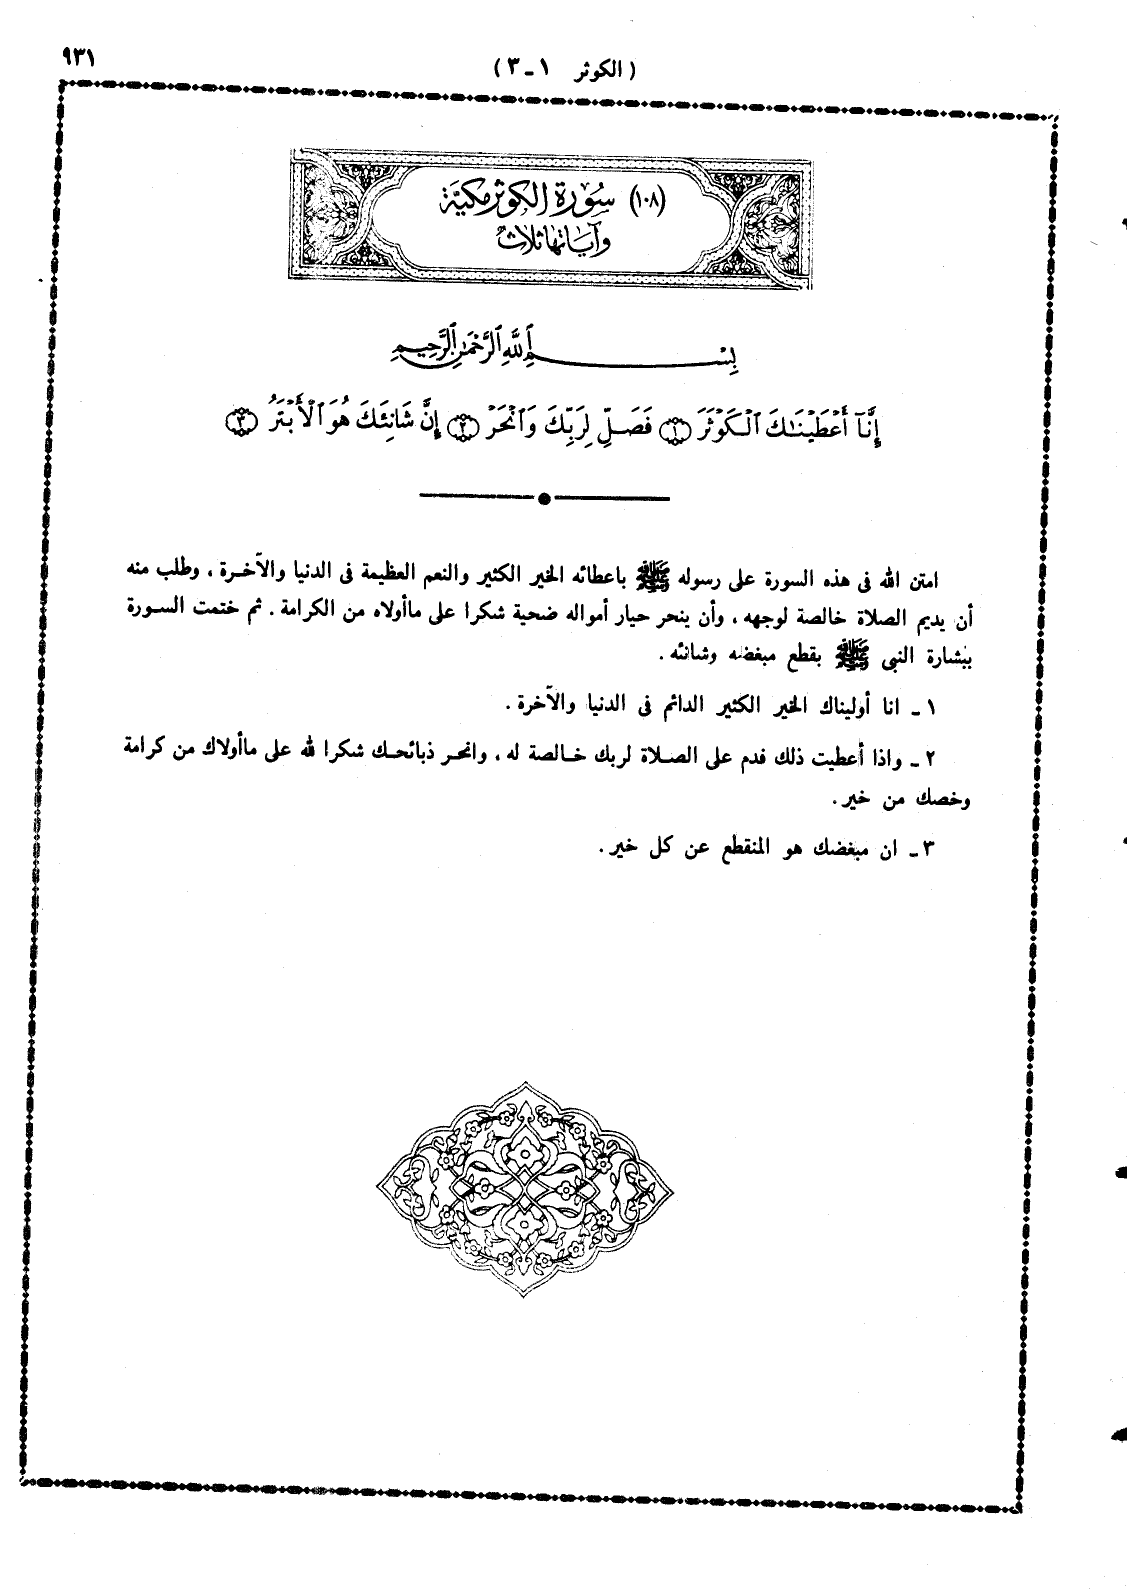 ٩٣١
( الكوثر ١ - ٣ )
(١٠٨) سُورَة الكوثر مكيَّة
وآياتها ثلاث
بِسْمِ ٱللَّهِ ٱلرَّحْمَٰنِ ٱلرَّحِيمِ
إِنَّآ أَعْطَيْنَٰكَ ٱلْكَوْثَرَ ١ فَصَلِّ لِرَبِّكَ وَٱنْحَرْ ٢ إِنَّ شَانِئَكَ هُوَ ٱلْأَبْتَرُ ٣
امتن الله فى هذه السورة على رسوله ﷺ باعطائه الخير الكثير والنعم العظيمة فى الدنيا والآخرة ، وطلب منه
أن يديم الصلاة خالصة لوجهه ، وأن ينحر حيار أمواله ضحية شكرا على ماأولاه من الكرامة . ثم ختمت السورة
ببشارة النبى ﷺ بقطع مبغضه وشانئه .
١ - انا أوليناك الخير الكثير الدائم فى الدنيا والآخرة .
٢ - واذا أعطيت ذلك فدم على الصلاة لربك خالصة له ، وانحر ذبائحك شكرا لله على ماأولاك من كرامة
وخصك من خير .
٣ - ان مبغضك هو المنقطع عن كل خير .